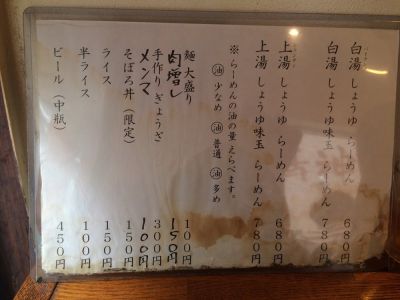 白湯しょうゆ らーめん 680円
白湯しょうゆ味玉 らーめん 780円
上湯しょうゆ らーめん 680円
上湯しょうゆ味玉 らーめん 780円
※らーめんの油の量 えらべます。
油 少なめ 油 普通 油 多め
麺 大盛り 100円
肉増し 150円
手作りぎょうざ 300円
メンマ 100円
そぼろ丼(限定) 150円
ライス 150円
半ライス 100円
ビール(中瓶) 450円